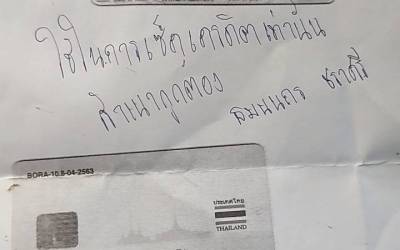 ใช้ในการเช็คเครดิตเท่านั้น
สำเนาถูกต้อง
BORA-10.8-04-2563
ประเทศไทย
THAILAND